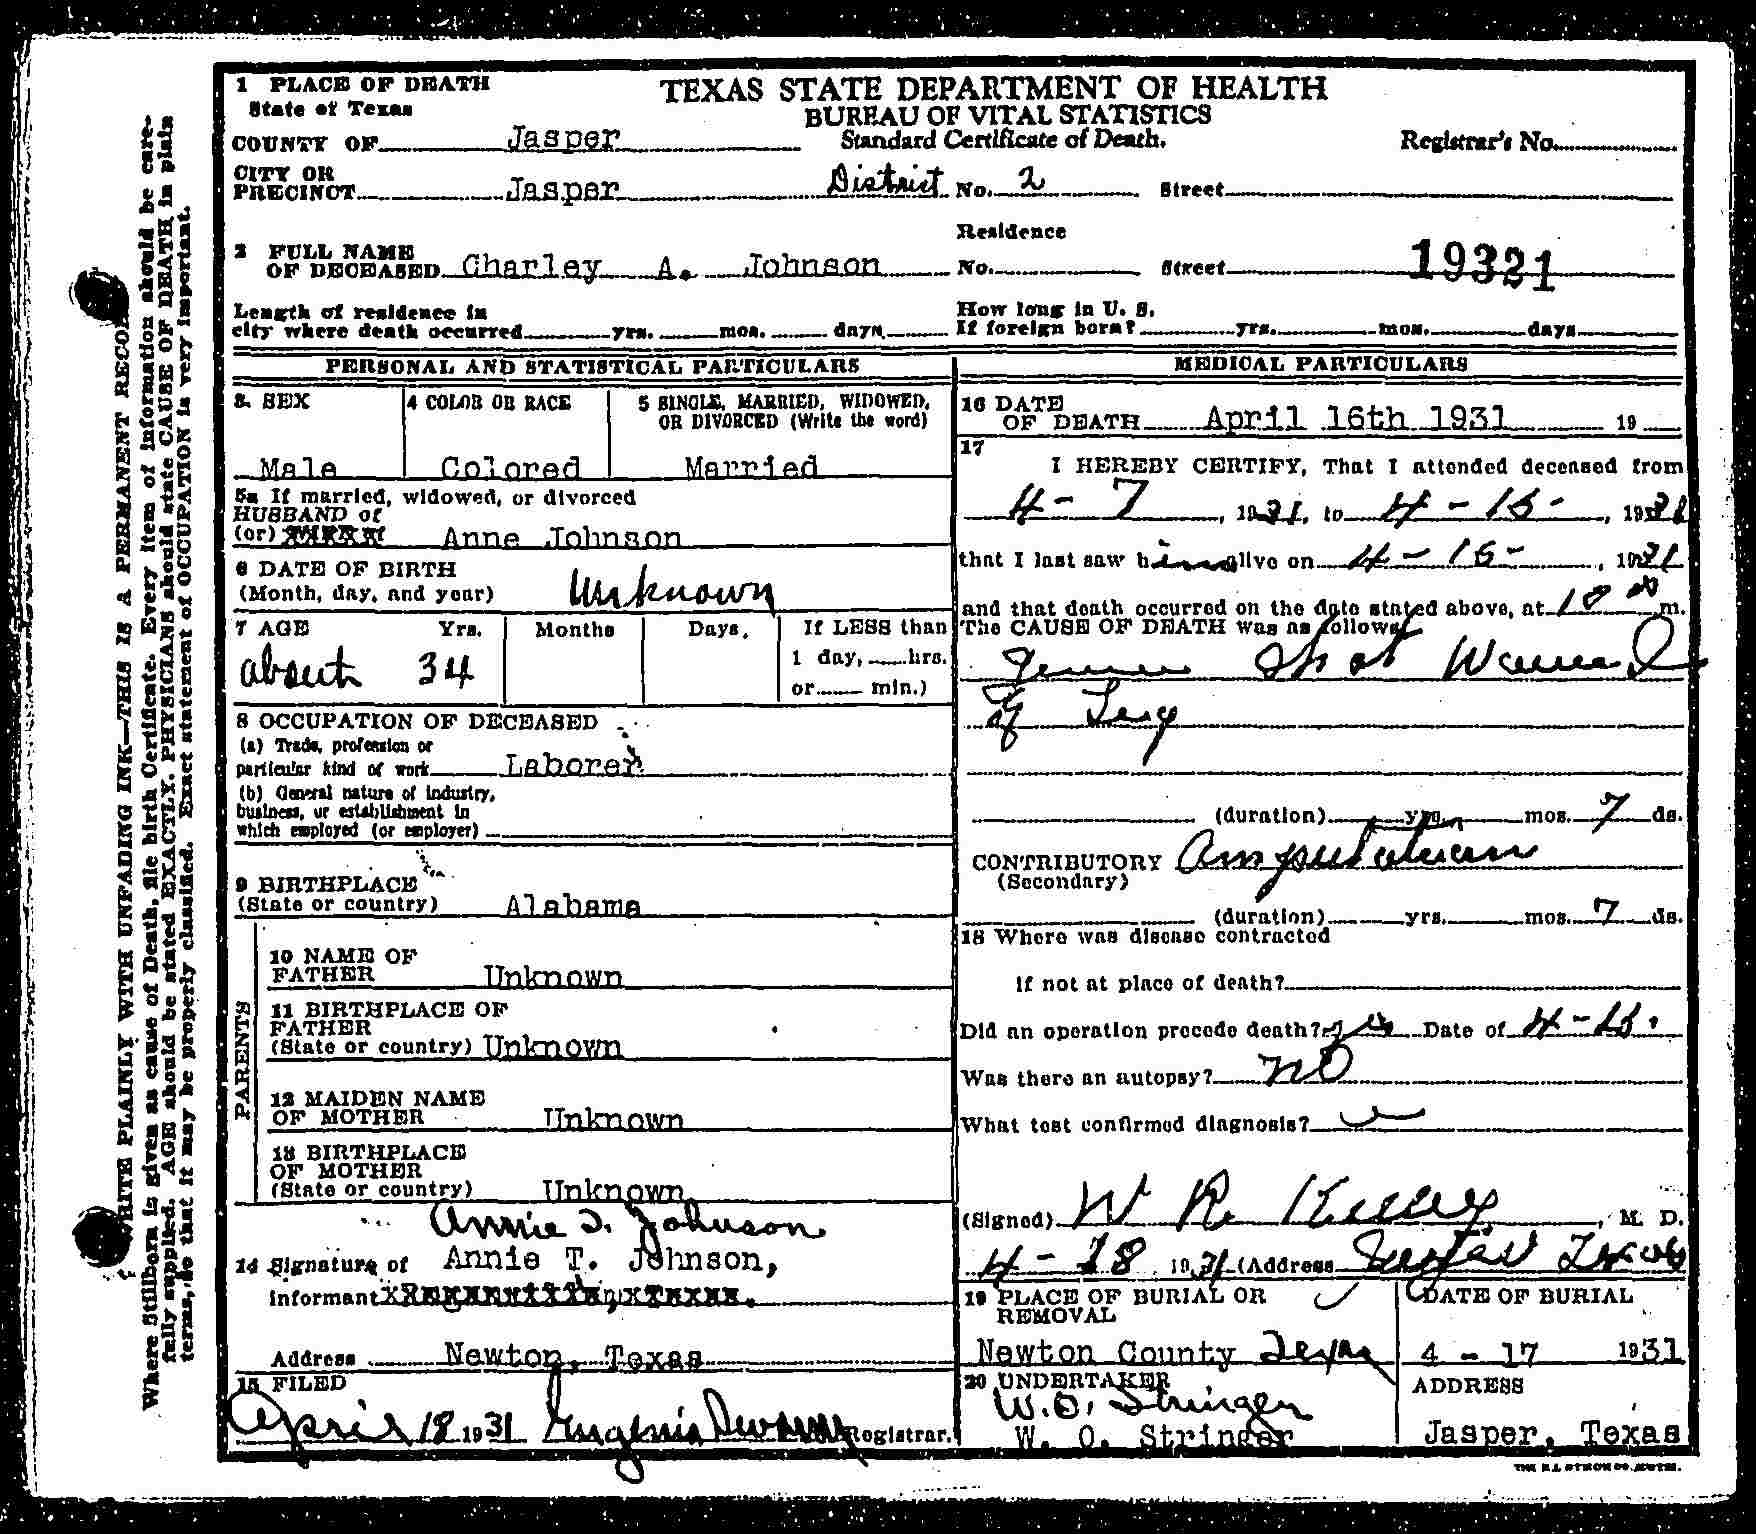 1 PLACE OF DEATH
State of Texas
TEXAS STATE DEPARTMENT OF HEALTH
BUREAU OF VITAL STATISTICS
Standard Certificate of Death.
COUNTY OF Jasper
Registrar's No.
CITY OR
PRECINCT Jasper District No. 2 Street
2 FULL NAME
OF DECEASED Charley A. Johnson
Residence
No. Street 19321
Length of residence in
city where death occurred yrs. mos. days
How long in U. S.
If foreign born? yrs. mos. days
PERSONAL AND STATISTICAL PARTICULARS
3. SEX
Male
4 COLOR OR RACE
Colored
5 SINGLE, MARRIED, WIDOWED,
OR DIVORCED (Write the word)
Married
5a If married, widowed, or divorced
HUSBAND of
(or) Anne Johnson
6 DATE OF BIRTH
(Month, day, and year) Unknown
7 AGE Yrs. Months Days. If LESS than
about 34 1 day, hrs.
or min.)
8 OCCUPATION OF DECEASED
(a) Trade, profession or
particular kind of work Laborer
(b) General nature of industry,
business, or establishment in
which employed (or employer)
9 BIRTHPLACE
(State or country) Alabama
PARENTS
10 NAME OF
FATHER Unknown
11 BIRTHPLACE OF
FATHER
(State or country) Unknown
12 MAIDEN NAME
OF MOTHER Unknown
13 BIRTHPLACE
OF MOTHER
(State or country) Unknown
Annie T. Johnson
14 Signature of Annie T. Johnson,
informant
Address Newton, Texas
15 FILED
April 18 1931 Eugenia Registrar.
MEDICAL PARTICULARS
16 DATE
OF DEATH April 16th 1931 19
17
I HEREBY CERTIFY, That I attended deceased from
4-7, 1931, to 4-15-, 1931
that I last saw him alive on 4-15-, 1931
and that death occurred on the date stated above, at m.
The CAUSE OF DEATH was as follows
Shot
Leg
(duration) yrs. mos. 7 ds.
CONTRIBUTORY Amputation
(Secondary)
(duration) yrs. mos. 7 ds.
18 Where was disease contracted
if not at place of death?
Did an operation precede death? yes Date of 4-15.
Was there an autopsy? no
What test confirmed diagnosis?
(Signed) W R, M. D.
4-18 1931 (Address Texas
19 PLACE OF BURIAL OR
REMOVAL
Newton County Texas
DATE OF BURIAL
4 - 17 1931
20 UNDERTAKER
W. O. Stringer
W. O. Stringer
ADDRESS
Jasper, Texas
WRITE PLAINLY WITH UNFADING INK—THIS IS A PERMANENT RECORD
Where Stillborn is given as cause of Death, file birth Certificate. Every item of information should be care-
fully supplied. AGE should be stated EXACTLY. PHYSICIANS should state CAUSE OF DEATH in plain
terms, so that it may be properly classified. Exact statement of OCCUPATION is very important.